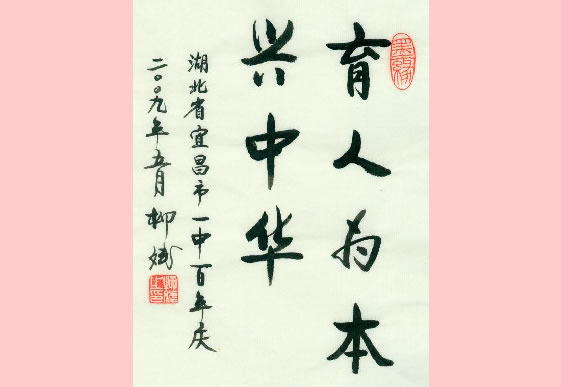 育人为本
兴中华
湖北省宜昌市一中百年庆
二〇〇九年五月 柳斌